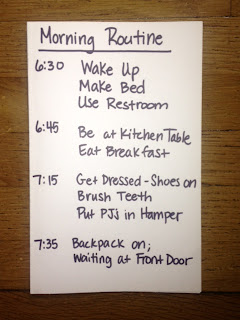 Morning Routine
6:30 Wake Up
Make Bed
Use Restroom
6:45 Be at Kitchen Table
Eat Breakfast
7:15 Get Dressed - Shoes on
Brush Teeth
Put PJs in Hamper
7:35 Backpack on;
Waiting at Front Door